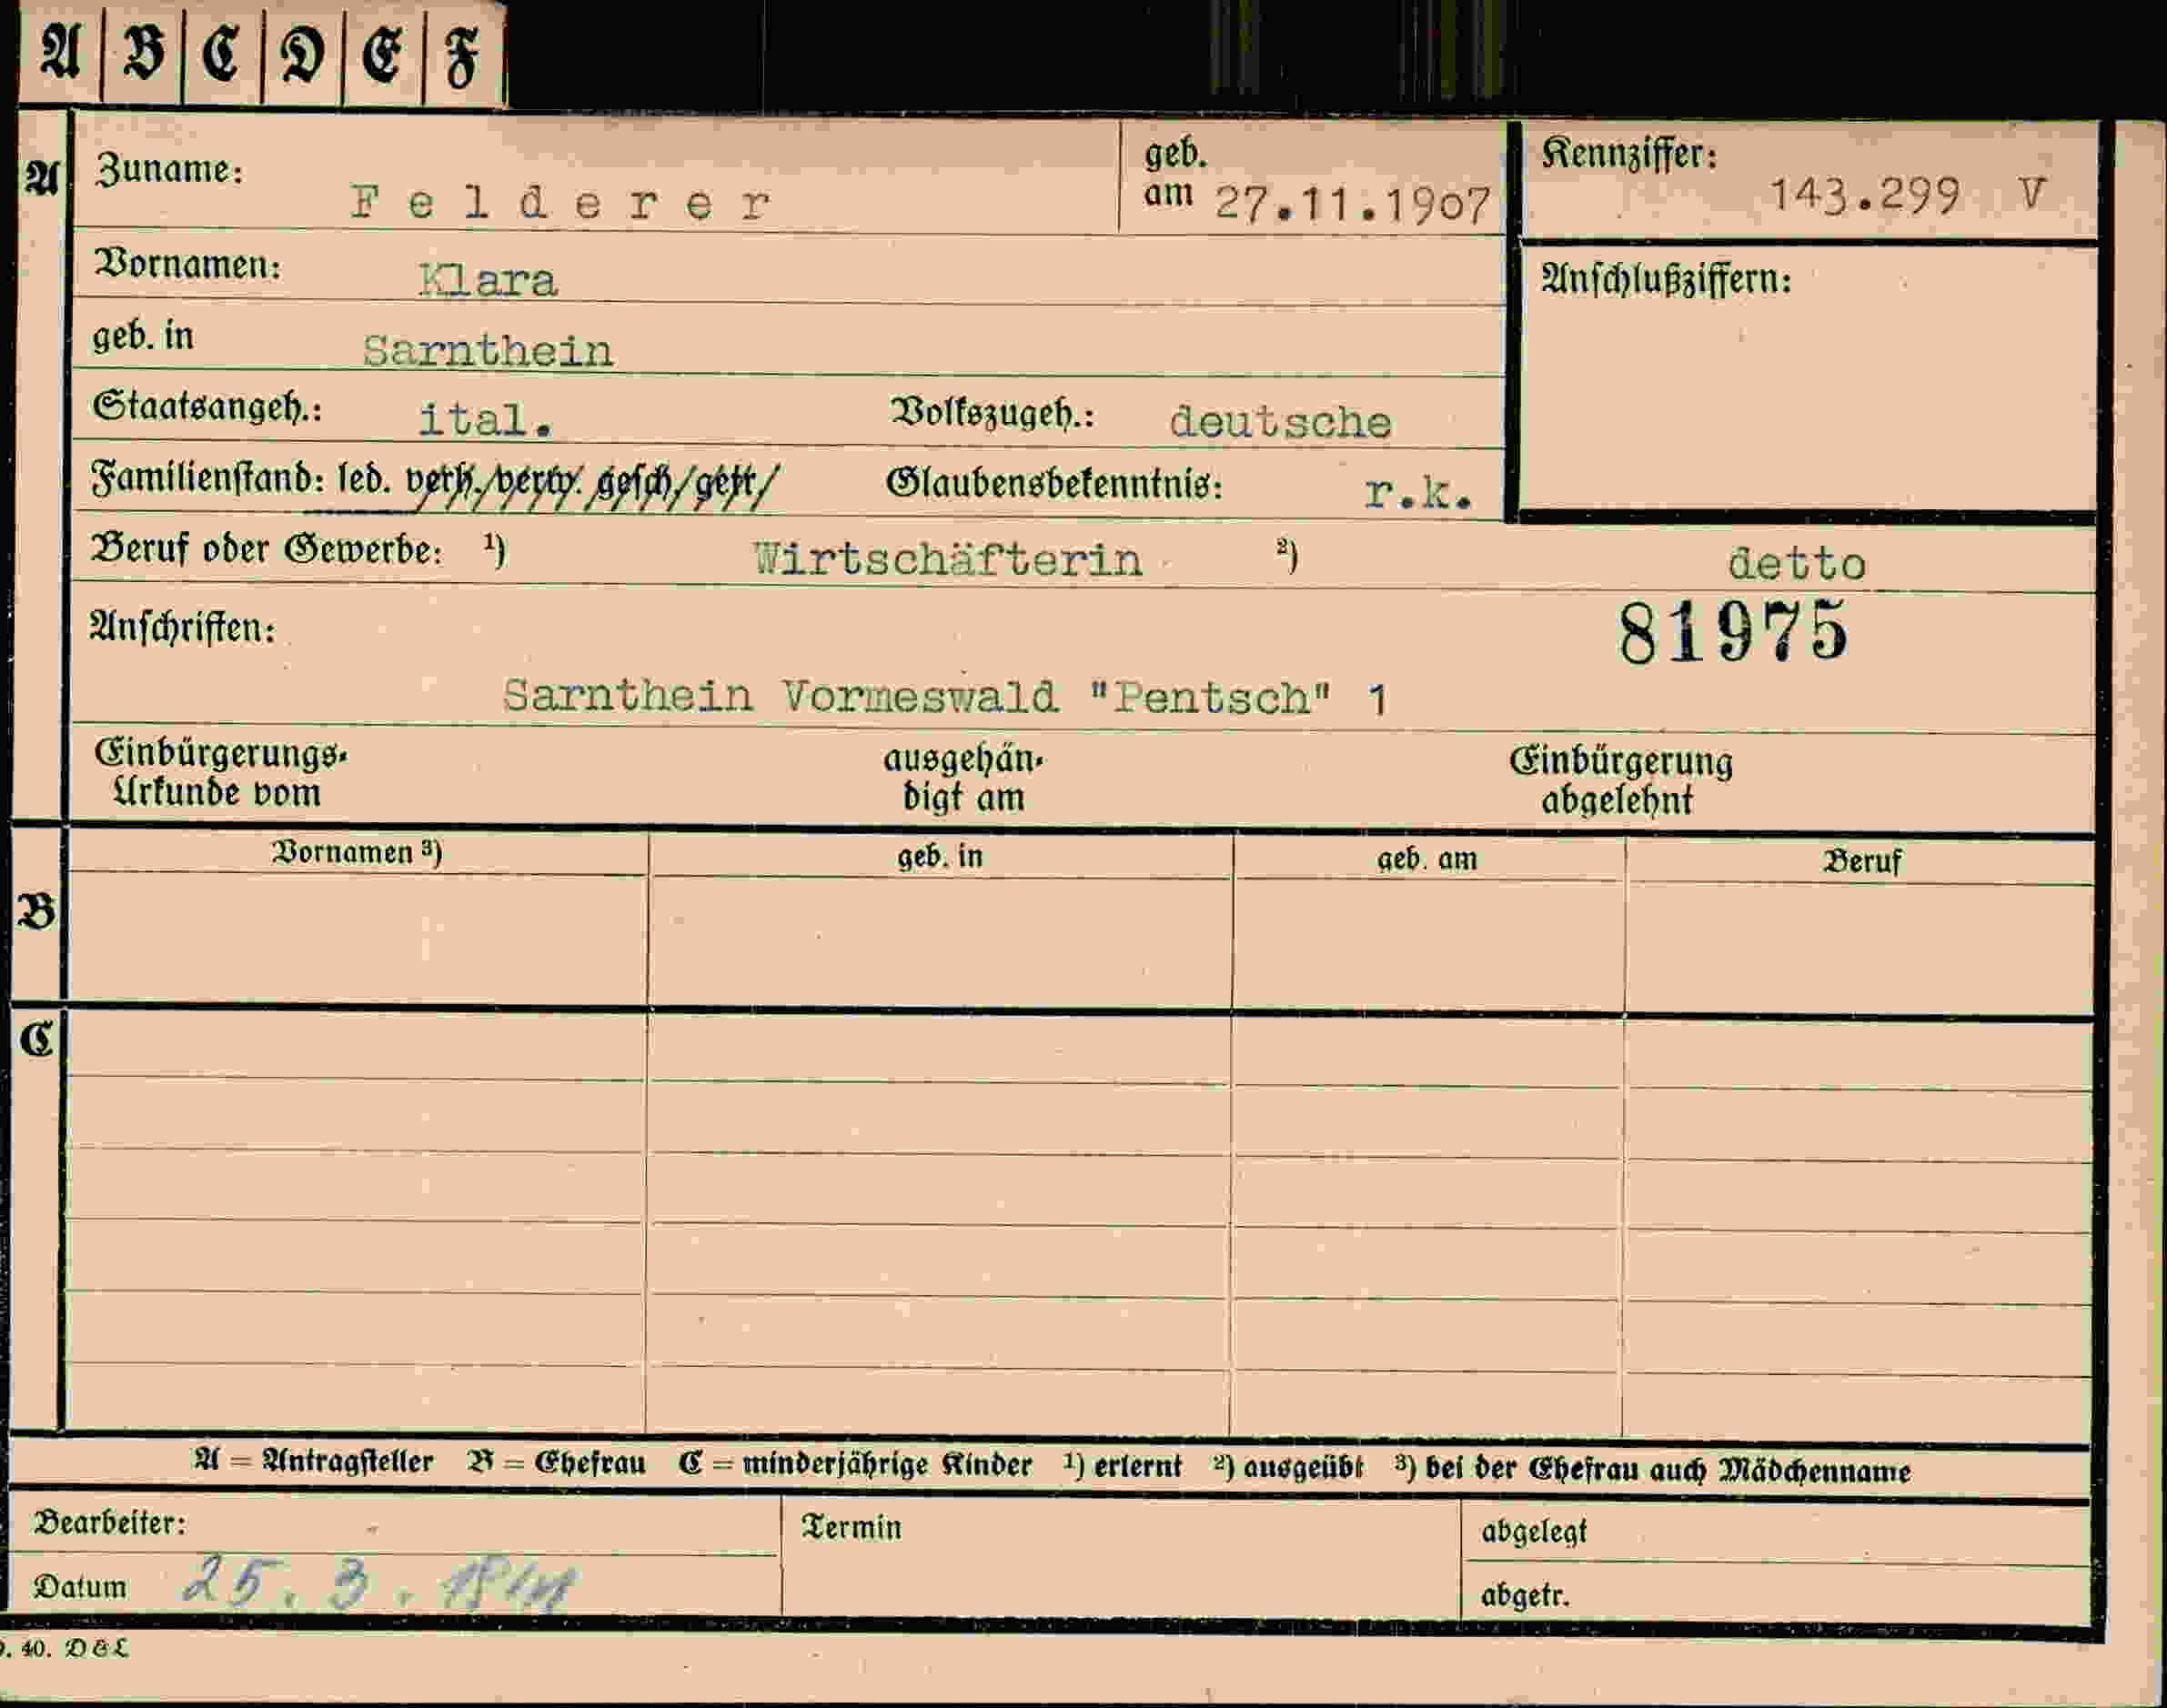 A B C D E F
A Zuname: Felderer geb. am 27.11.1907 Kennziffer: 143.299 V
Vornamen: Klara Anschlußziffern:
geb. in Sarnthein
Staatsangeh.: ital. Volkszugeh.: deutsche
Familienstand: led. verh./verw. gesch/getr/ Glaubensbekenntnis: r.k.
Beruf oder Gewerbe: ¹) Wirtschäfterin ²) detto
Anschriften: 81975
Sarnthein Vormeswald "Pentsch" 1
Einbürgerungs- ausgehän- Einbürgerung
Urkunde vom digt am abgelehnt
Vornamen ³) geb. in geb. am Beruf
B
C
A = Antragsteller B = Ehefrau C = minderjährige Kinder ¹) erlernt ²) ausgeübt ³) bei der Ehefrau auch Mädchenname
Bearbeiter: Termin abgelegt
Datum 25. 3. abgetr.
40. D & L